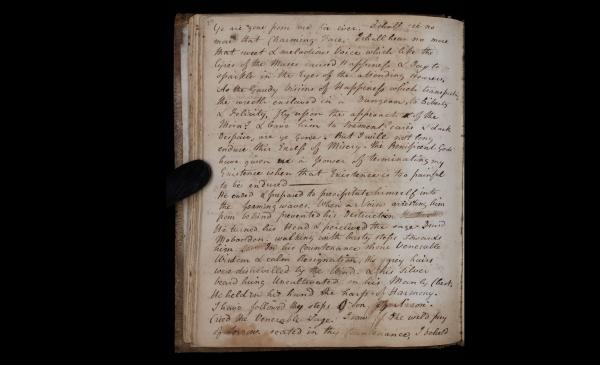 Ye are gone from me for ever. I shall see no
more that Charming Face, I shall hear no more
that sweet & melodious Voice which like the
Lyres of the Muses caused Happiness & Joy to
sparkle in the Eyes of the attending Hearers,
As the Gaudy Visions of Happiness which transports
the wretch enslaved in a Dungeon, to Liberty
& Felicity, fly upon the approach of the
Morn? & leave him to torment, cares & dark
Despair, are ye gone. But I will not long
endure this Excess of Misery. the Beneficent Gods
have given me a power of terminating my
Existence when that Existence is too painful
to be endured
He ended & prepared to precipitate himself into
the foaming waves. When a Voice arresting him
from behind prevented his Destruction
He turned his Head & perceived the sage Druid
walking with hasty steps towards
him. In his Countenance shone Venerable
Wisdom & calm Resignation, his grey hairs
were dishevelled by the Wind. & his Silver
beard hung Uncultivated on his Manly Chest.
He held in his hand the harp of Harmony.
I have followed thy steps O Son
Cried the Venerable Sage. I saw the wild fury
of sorrow seated in thy Countenance, I beheld